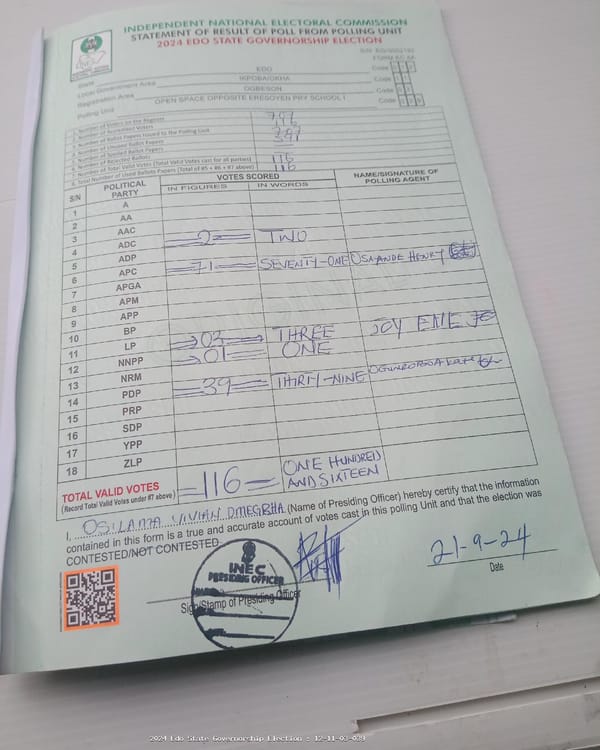 INDEPENDENT NATIONAL ELECTORAL COMMISSION
STATEMENT OF RESULT OF POLL FROM POLLING UNIT
2024 EDO STATE GOVERNORSHIP ELECTION
State EDO Code
Local Government Area IKPOBA/OKHA Code
Registration Area OGBESON Code
Polling Unit OPEN SPACE OPPOSITE ERESOYEN PRY SCHOOL I Code
1. Number of Voters on the Register
2. Number of Accredited Voters
3. Number of Ballot Papers Issued to the Polling Unit
4. Number of Unused Ballot Papers
5. Number of Spoiled Ballot Papers
6. Number of Rejected Ballots
7. Number of Total Valid Votes (Total Valid Votes cast for all parties) 116
8. Total Number of Used Ballots Papers (Total of #5 + #6 + #7 above) 116
S/N POLITICAL PARTY VOTES SCORED NAME/SIGNATURE OF POLLING AGENT
IN FIGURES IN WORDS
1 A
2 AA
3 AAC
4 ADC 2 TWO
5 ADP
6 APC 71 SEVENTY-ONE OSAYANDE HENRY
7 APGA
8 APM
9 APP
10 BP
11 LP 03 THREE JOY EME
12 NNPP 01 ONE
13 NRM
14 PDP 39 THIRTY-NINE
15 PRP
16 SDP
17 YPP
18 ZLP
TOTAL VALID VOTES =116= ONE HUNDRED AND SIXTEEN
(Record Total Valid Votes under #7 above)
I, OSILAMA VIVIAN OMEGBHA (Name of Presiding Officer) hereby certify that the information
contained in this form is a true and accurate account of votes cast in this polling Unit and that the election was
CONTESTED/NOT CONTESTED.
INEC
PRESIDING OFFICER
21-9-24
Sign/Stamp of Presiding Officer
Date
2024 Edo State Governorship Election : 12-11-03-039